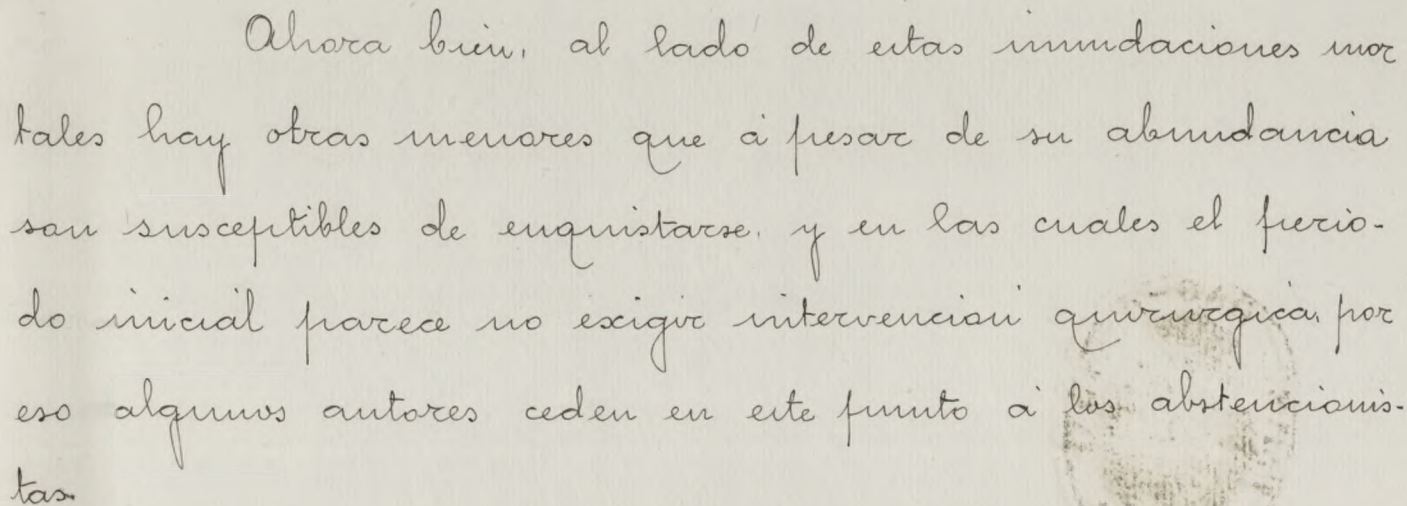 Ahora bien, al lado de estas inundaciones mor
tales hay otras menores que á pesar de su abundancia
son susceptibles de enquistarse, y en las cuales el perio-
do inicial parece no exigir intervención quirurgica, por
eso algunos autores ceden en este punto á los abstencionis-
tas.